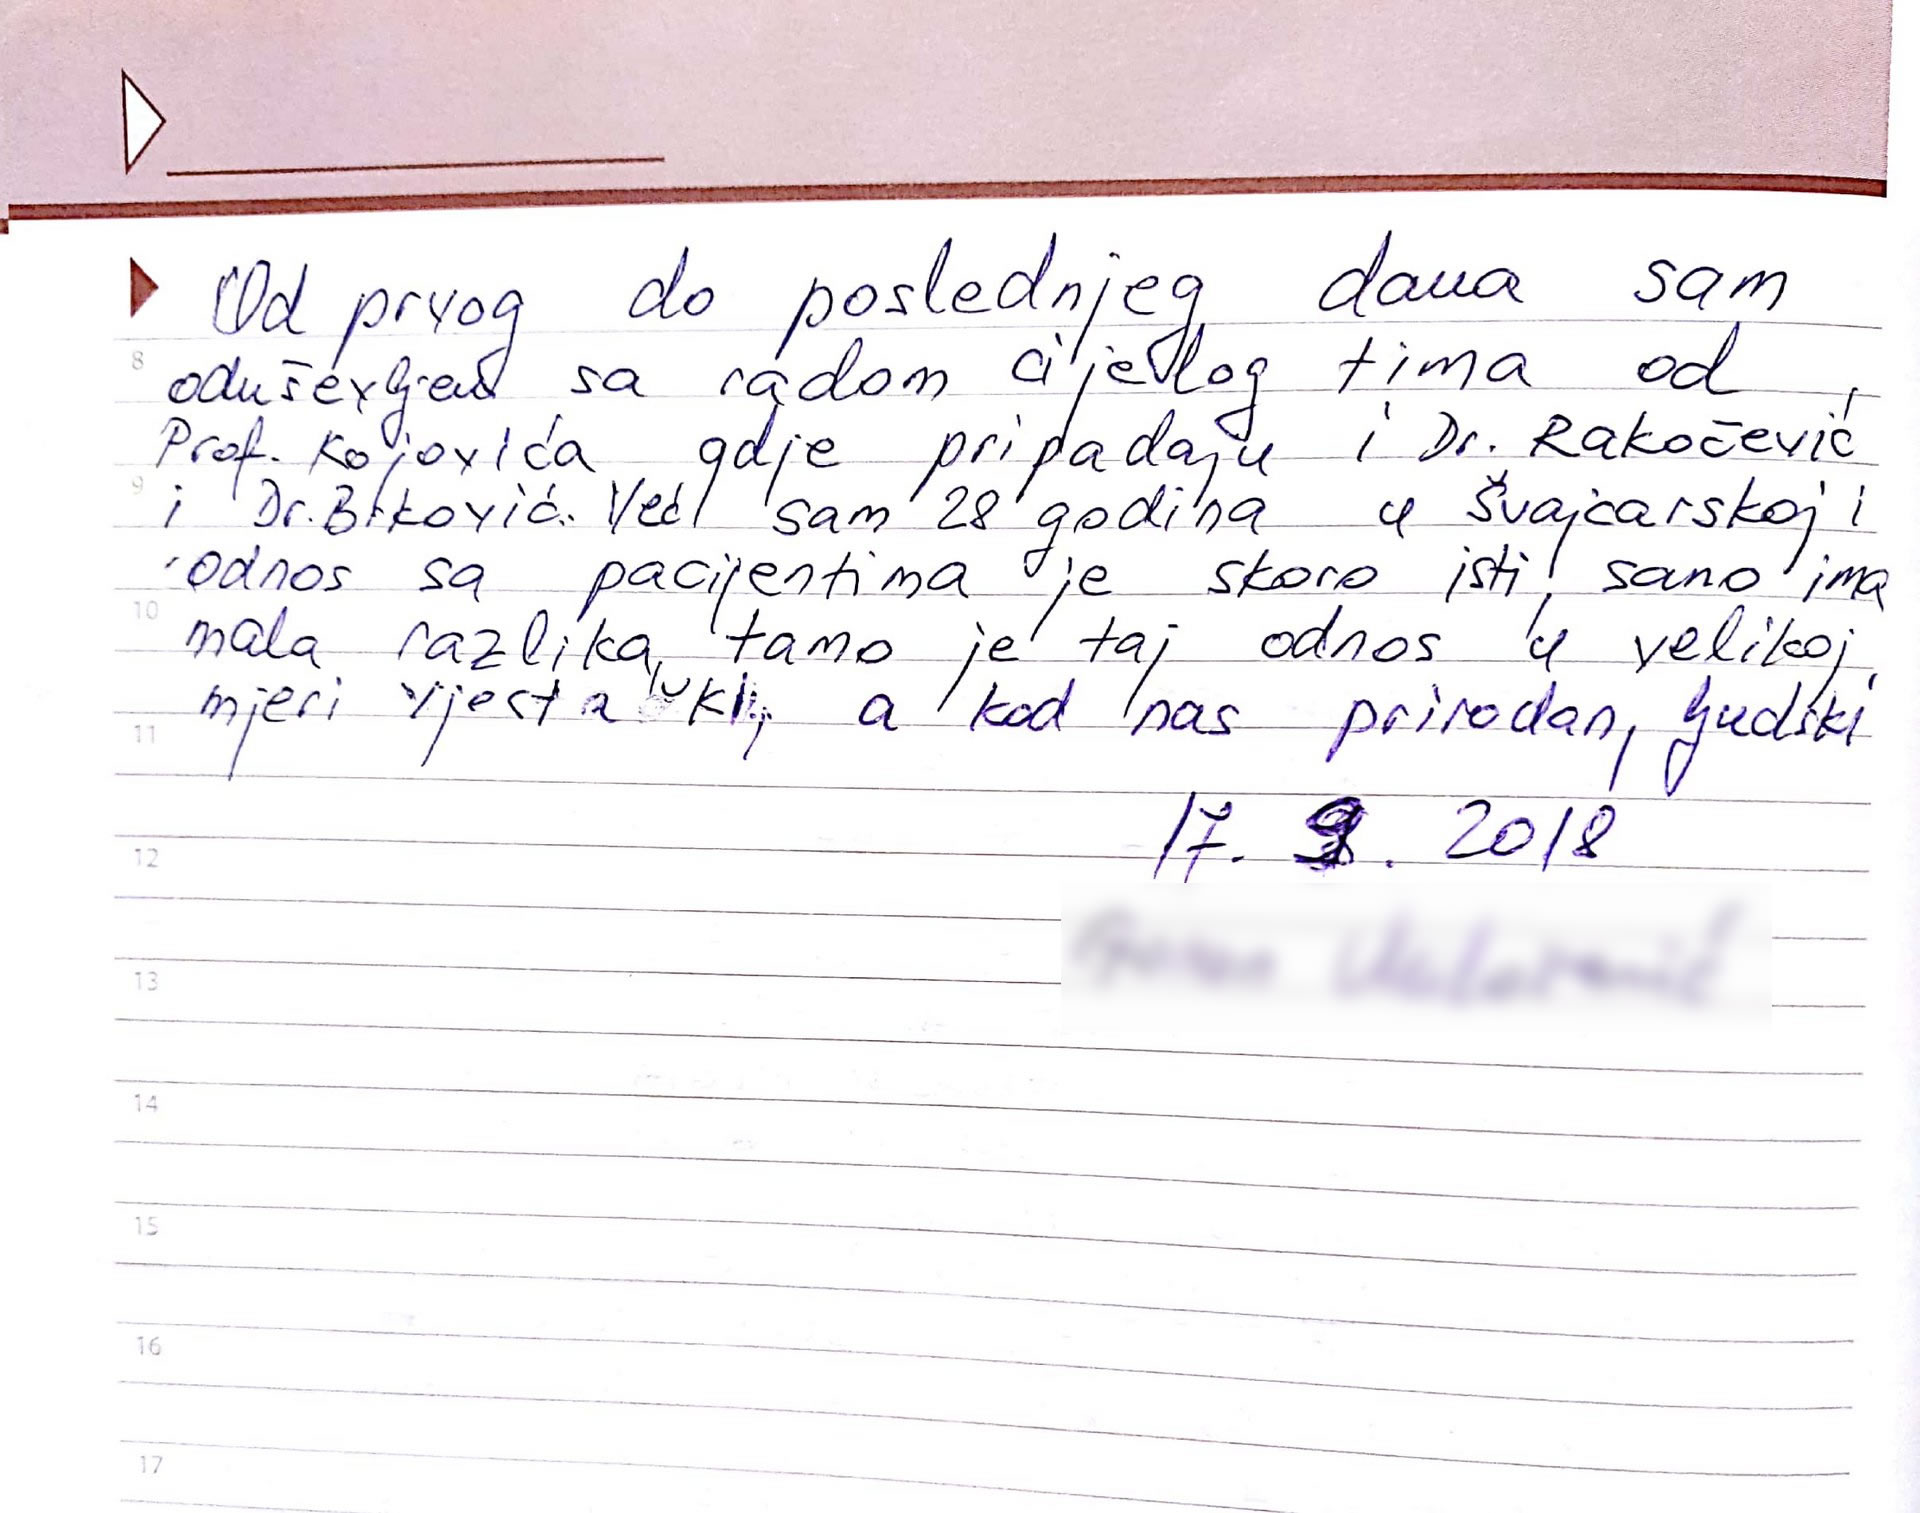 Od prvog do poslednjeg dana sam
8
oduševljen sa radom cijelog tima od
Prof. Kojovića gdje pripadaju i Dr. Rakočević
9
i Dr. Birković. Već sam 28 godina u Švajcarskoj i
odnos sa pacijentima je skoro isti, samo ima
10
mala razlika, tamo je taj odnos u velikoj
mjeri vjestački, a kod nas prirodan, ljudski
11
17. 9. 2018
12
13
14
15
16
17